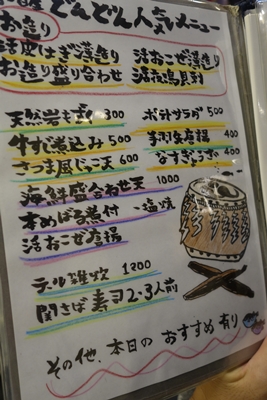 どんどん人気メニュー
お造り
活皮はぎ薄造り
活おこぜ薄造り
お造り盛り合わせ
天然岩もずく 300
ポテトサラダ 500
牛すじ煮込み 500
手羽先唐揚 400
さつま風じゃこ天 600
400
海鮮盛合わせ天 1000
本めばる煮付 塩焼
活おこぜ唐揚
テール雑炊 1200
関さば寿司 2-3人前
その他、本日のおすすめ有り